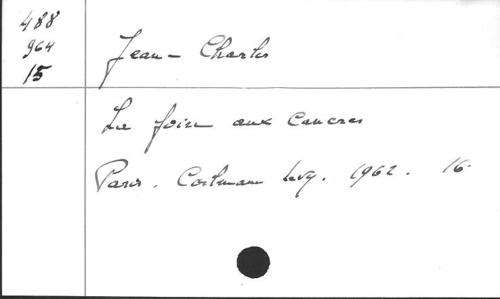 488
964
15
Jean-Charles
La foire aux cancres
Paris. Calmann Lévy. 1962. 16